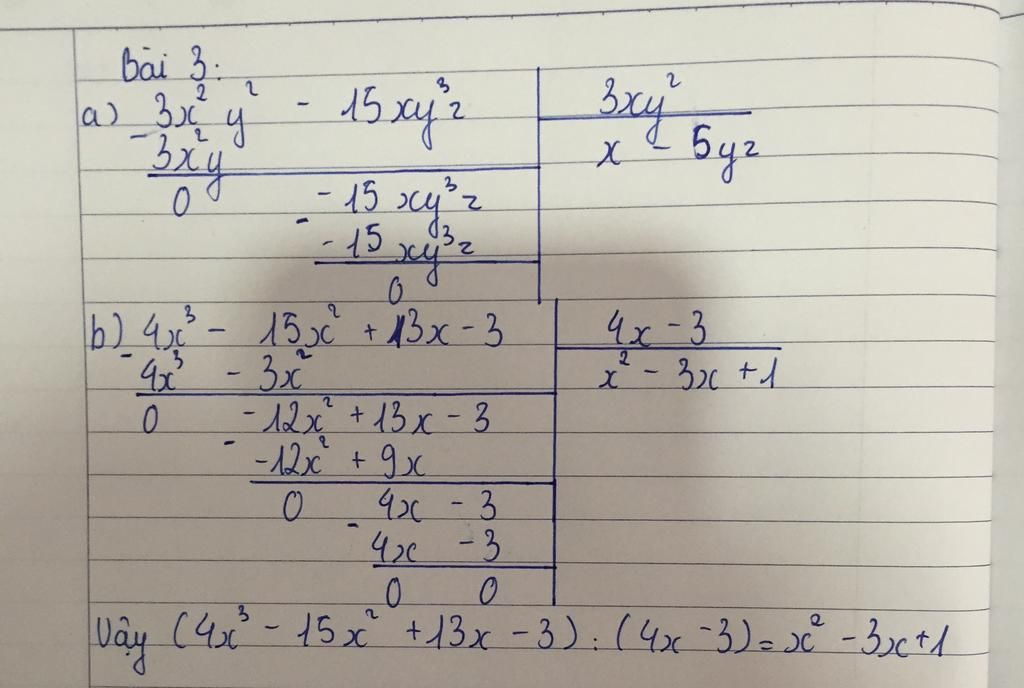 Bài 3:
a) 3x² y² - 15xy³z | 3xy²
- 3x²y | x - 5yz
0 - 15 xy³z
- - 15 xy³z
0
b) 4x³ - 15x² + 13x - 3 | 4x - 3
- 4x³ - 3x² | x² - 3x + 1
0 - 12x² + 13x - 3
- - 12x² + 9x
0 4x - 3
- 4x - 3
0 0
Vậy (4x³ - 15x² + 13x - 3) : (4x - 3) = x² - 3x + 1